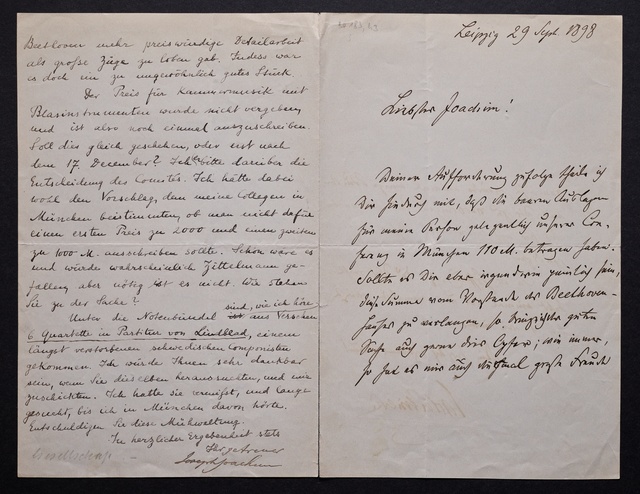 Beethoven mehr preiswürdige Detailarbeit
als große Züge zu loben gab. Indess war
es doch ein zu ungewöhnlich gutes Stück
Der Preis für Kammermusik mit
Blasinstrumenten wurde nicht vergeben,
und ist also noch einmal auszuschreiben.
Soll dies gleich geschehen, oder erst nach
dem 17. December? Ich bitte darüber die
Entscheidung des Comités. Ich hätte dabei
wohl den Vorschlag, dem meine Collegen in
München beistimmten, ob man nicht dafür
einen ersten Preis zu 2000 und einen zweiten
zu 1000 M. ausschreiben sollte. Schön wäre es
und würde wahrscheinlich Zittelmann ge-
fallen aber nötig ist es nicht. Wie stehen
Sie zu der Sache?
Unter die Notenbündel sind, wie ich höre aus Versehen
6 Quartette in Partitur von Lindblad, einem
längst verstorbenen schwedischen Componisten
gekommen. Ich würde Ihnen sehr dankbar
sein, wenn Sie dieselben heraussuchten, und mir
zuschickten. Ich hatte sie vermißt, und lange
gesucht, bis ich in München davon hörte.
Entschuldigen Sie diese Mühwaltung.
In herzlicher Ergebenheit stets
Ihr getreuer
Joseph Joachim
Leipzig 29 Sept. 1898
Liebster Joachim!
Deiner Aufforderung zufolge theile ich
Dir hiedurch mit, daß die baaren Auslagen
für meine Person gelegentlich unserer Con-
ferenz in München 110 M. betragen haben.
Sollte es Dir aber irgendwie peinlich sein,
diese Summe vom Vorstande des Beethoven-
hauses zu verlangen, so bringe ich der guten
Sache auch gerne dies Opfer; wie immer,
so hat es mir auch diesmal große Freude